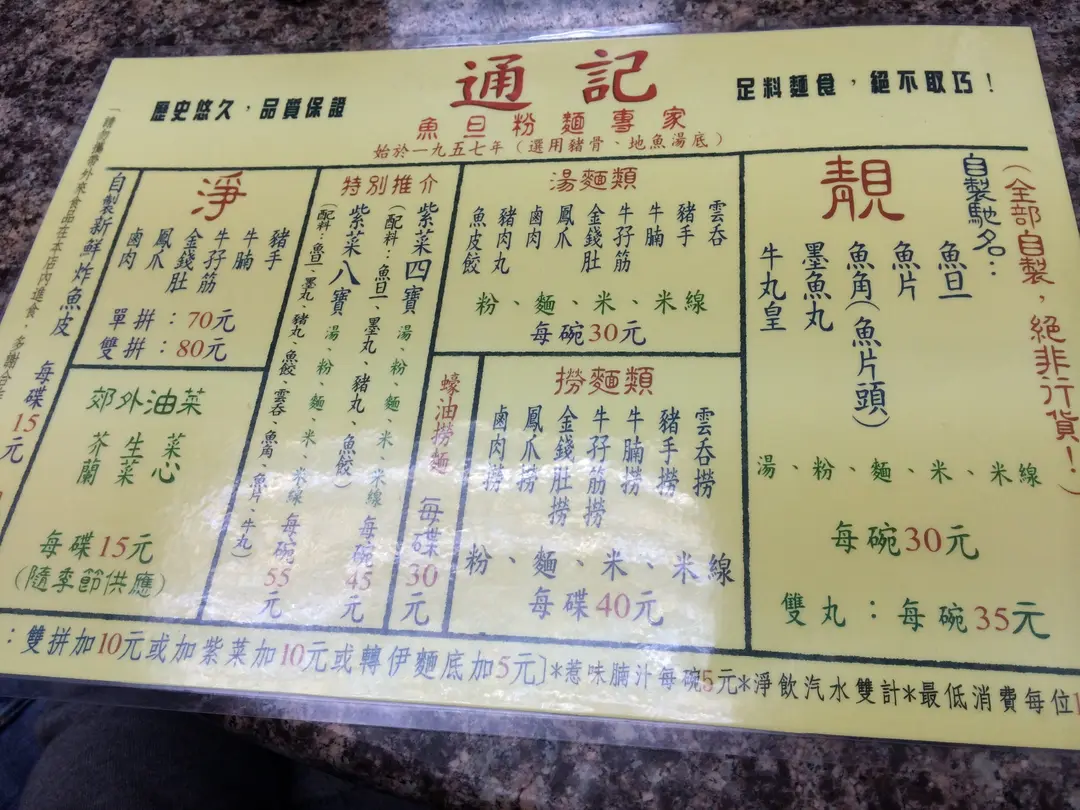 歷史悠久，品質保證
通記
足料麵食，絕不取巧！
魚旦粉麵專家
始於一九五七年（選用豬骨、地魚湯底）
（全部自製，絕非行貨！）
自製馳名：
靚
魚旦
魚片
魚角（魚片頭）
墨魚丸
牛丸皇
湯、粉、麵、米、米線
每碗30元
雙丸：每碗35元
湯麵類
雲吞
豬手
牛腩
牛孖筋
金錢肚
鳳爪
鹵肉
豬肉丸
魚皮餃
粉、麵、米、米線
每碗30元
撈麵類
雲吞撈
豬手撈
牛腩撈
牛孖筋撈
金錢肚撈
鳳爪撈
鹵肉撈
粉、麵、米、米線
每碟40元
蠔油撈麵
每碟30元
特別推介
紫菜四寶
（配料：魚旦、墨丸、豬丸、魚餃）
湯、粉、麵、米、米線
每碗45元
紫菜八寶
（配料：魚旦、墨丸、豬丸、魚餃、雲吞、魚角、魚片、牛丸）
湯、粉、麵、米、米線
每碗55元
淨
豬手
牛腩
牛孖筋
金錢肚
鳳爪
鹵肉
單拼：70元
雙拼：80元
郊外油菜
菜心
生菜
芥蘭
每碟15元
（隨季節供應）
自製新鮮炸魚皮
每碟15元
請勿攜帶外來食品在本店內進食，多謝合
：雙拼加10元或加紫菜加10元或轉伊麵底加5元〕*惹味腩汁每碗5元*淨飲汽水雙計*最低消費每位